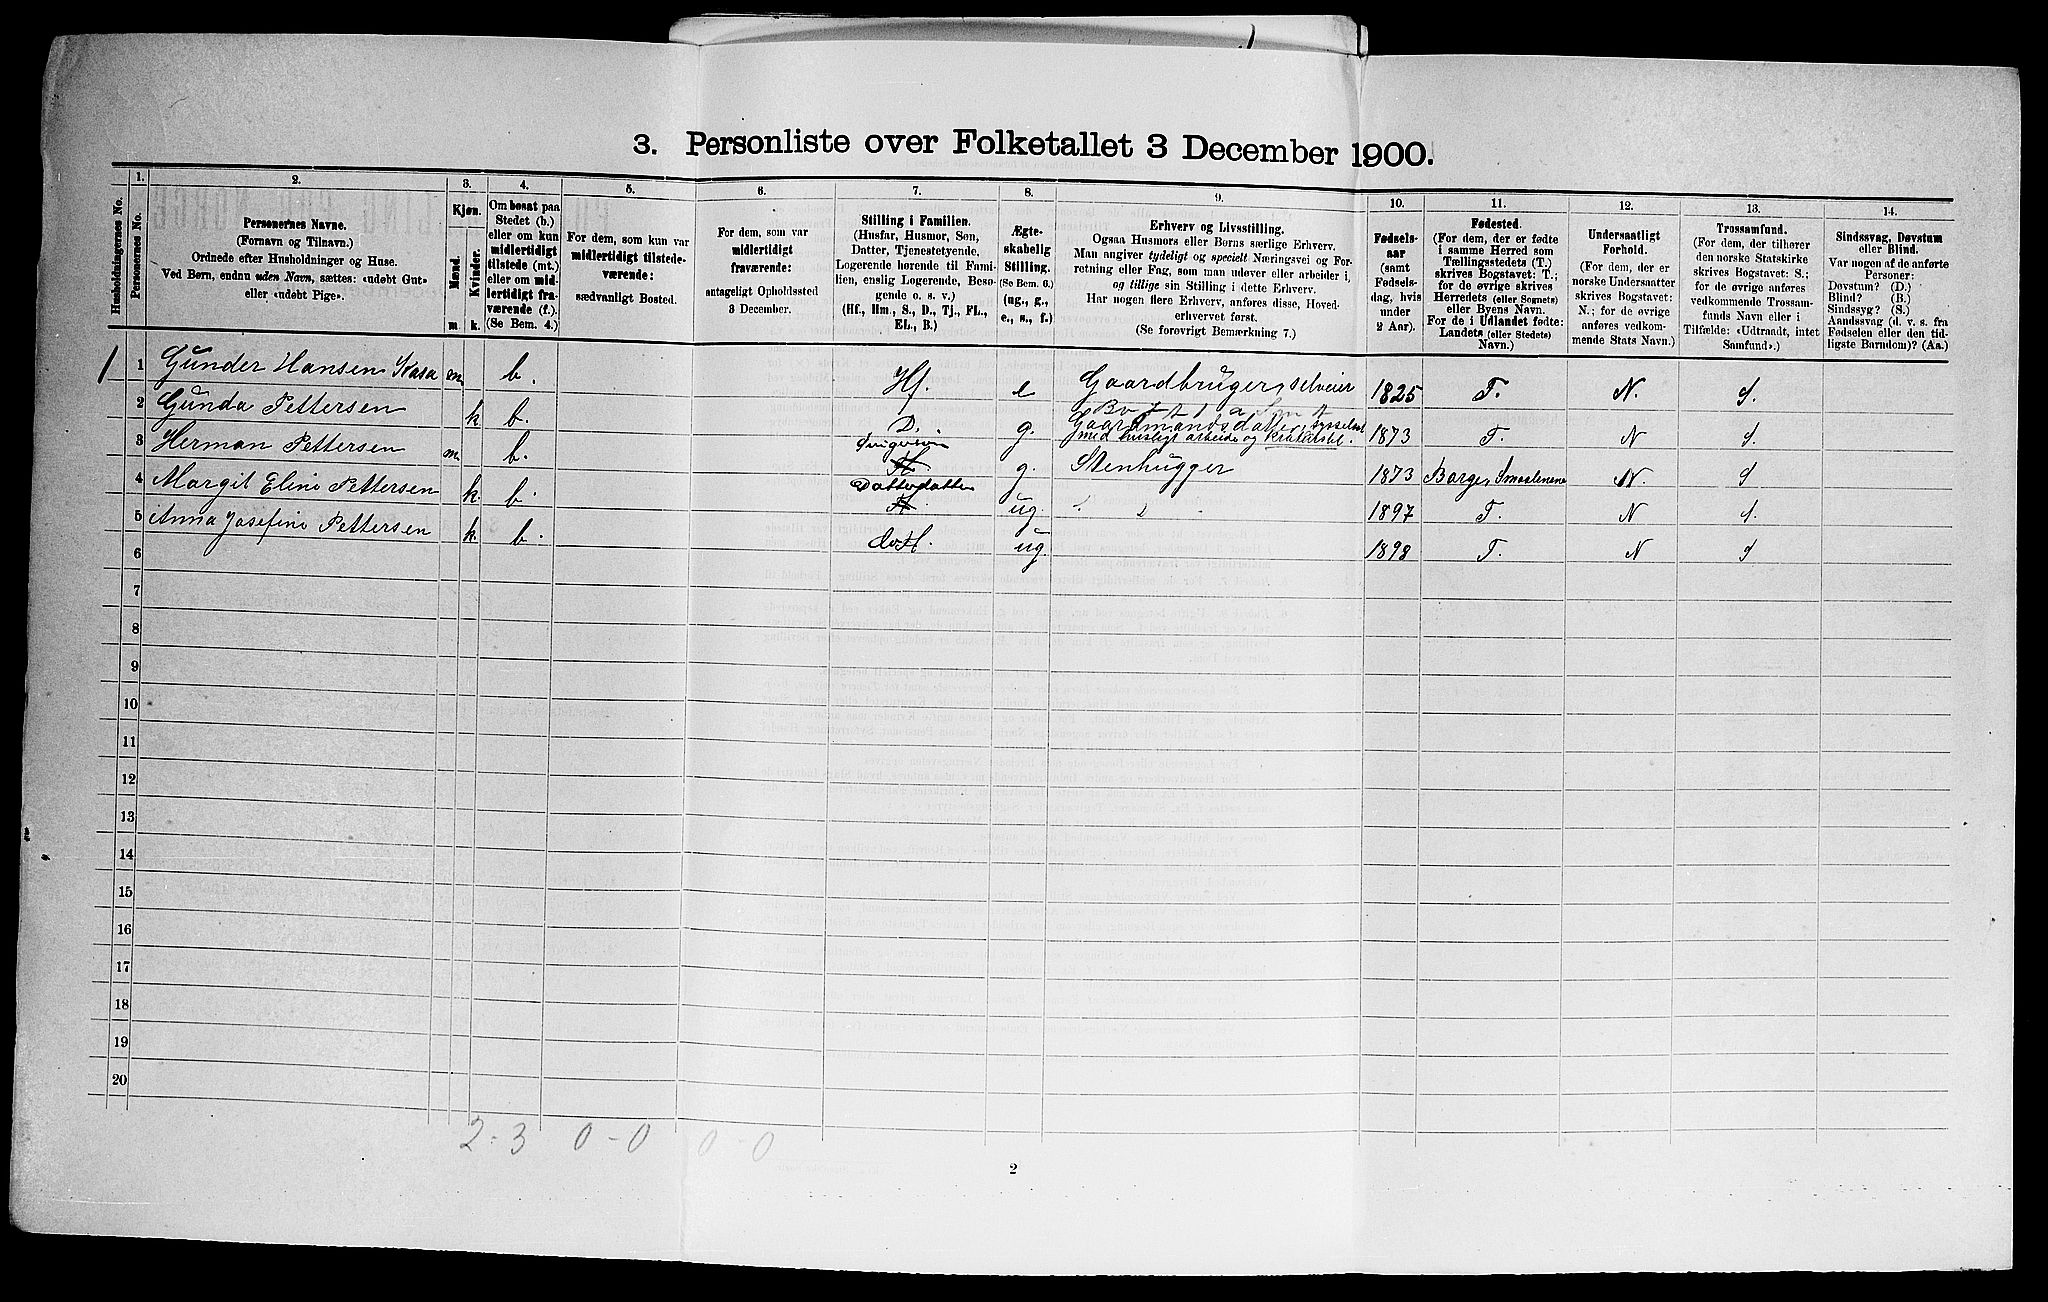 3. Personliste over Folketallet 3 December 1900.
1. 2. 3. 4. 5. 6. 7. 8. 9. 10. 11. 12. 13. 14.
Husholdningernes No.
Personernes No.
Personernes Navne.
(Fornavn og Tilnavn.)
Ordnede efter Husholdninger og Huse.
Ved Børn, endnu uden Navn, sættes: «udøbt Gut»
eller «udøbt Pige».
Kjøn.
Mænd.
Kvinder.
m. k.
Om bosat paa
Stedet (b.)
eller om kun
midlertidigt
tilstede (mt.)
eller om mid-
lertidigt fra-
værende (f.).
(Se Bem. 4.)
For dem, som kun var
midlertidigt tilstede-
værende:
sædvanligt Bosted.
For dem, som var
midlertidigt
fraværende:
antageligt Opholdssted
3 December.
Stilling i Familien.
(Husfar, Husmor, Søn,
Datter, Tjenestetyende,
Logerende hørende til Fami-
lien, enslig Logerende, Besø-
gende o. s. v.)
(Hf., Hm., S., D., Tj., FL.,
EL., B.)
Ægte-
skabelig
Stilling.
(Se Bem. 6.)
(ug., g.,
e., s., f.)
Erhverv og Livsstilling.
Ogsaa Husmors eller Børns særlige Erhverv.
Man angiver tydeligt og specielt Næringsvei og For-
retning eller Fag, som man udøver eller arbeider i,
og tillige sin Stilling i dette Erhverv.
Har nogen flere Erhverv, anføres disse, Hoved-
erhvervet først.
(Se forøvrigt Bemærkning 7.)
Fødsels-
aar
(samt
Fødsels-
dag, hvis
under
2 Aar).
Fødested.
(For dem, der er fødte
i samme Herred som
Tællingsstedets (T.)
skrives Bogstavet: T.;
for de øvrige skrives
Herredets (eller Sognets)
eller Byens Navn.
For de i Udlandet fødte:
Landets (eller Stedets)
Navn.)
Undersaatligt
Forhold.
(For dem, der er
norske Undersaatter
skrives Bogstavet:
N.; for de øvrige
anføres vedkom-
mende Stats Navn.)
Trossamfund.
(For dem, der tilhører
den norske Statskirke
skrives Bogstavet: S.;
for de øvrige anføres
vedkommende Trossam-
funds Navn eller i
Tilfælde: «Udtraadt, intet
Samfund».)
Sindssvag, Døvstum
eller Blind.
Var nogen af de anførte
Personer:
Døvstum? (D.)
Blind? (B.)
Sindssyg? (S.)
Aandssvag (d. v. s. fra
Fødselen eller den tid-
ligste Barndom)? (Aa.)
1 1 Gunder Hansen m. b. Hf. e Gaardbruger, selveier 1825 T. N. S.
2 Gunda Pettersen k b. D. g. Gaardmandsdatter, sysselsat
med husligt arbeide og kreaturstel. 1873 T. N S.
3 Herman Pettersen m. b. Svigersøn g. Stenhugger 1873 Borge, Smaalenene N. S
4 Margit Elini Pettersen k. b. Datterdatter ug. 1897 T. N S.
5 Anna Josefine Pettersen k. b. do ug. 1898 T. N S
6
7
8
9
10
11
12
13
14
15
16
17
18
19
20
2-3 0-0 0-0
2